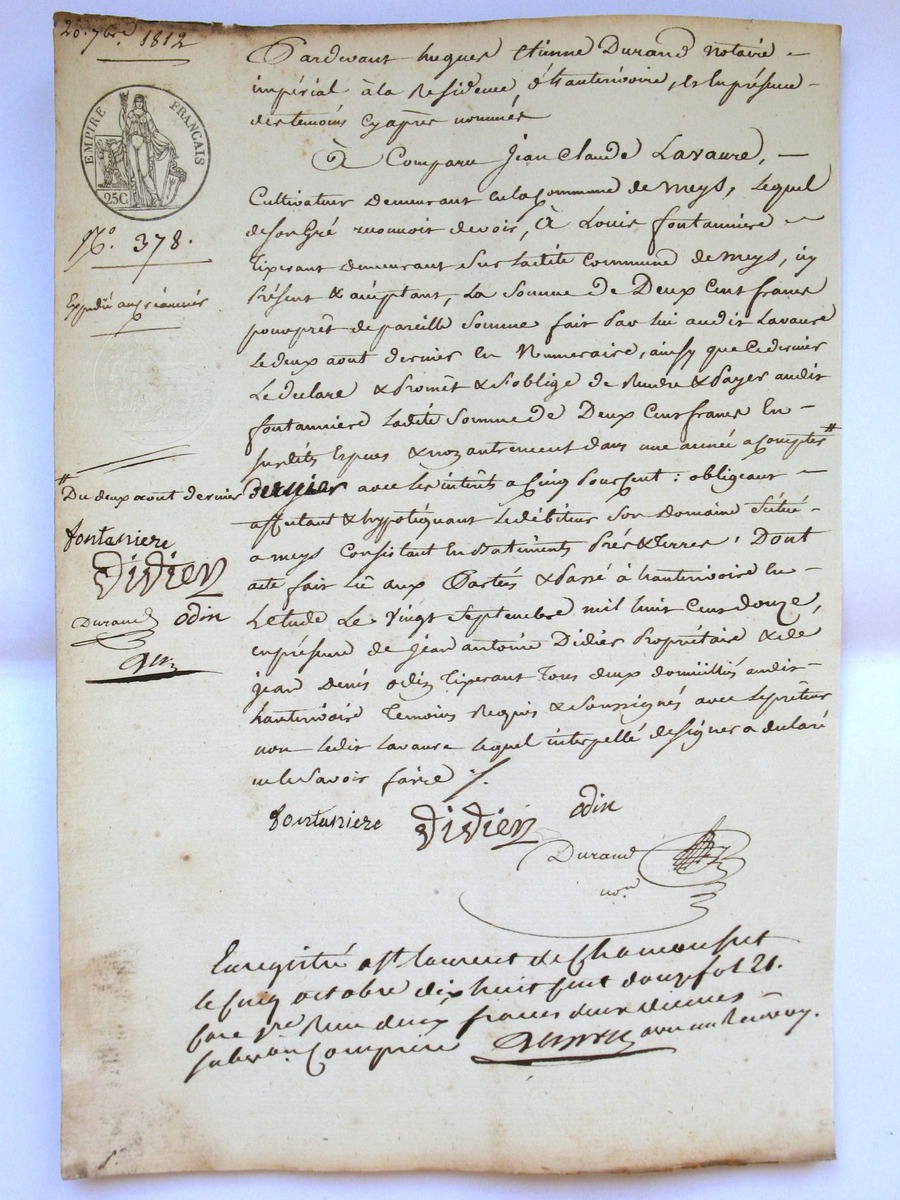 20. 7bre. 1812
EMPIRE FRANÇAIS
25C
No. 378.
Expédié au créancier
Pardevant hugues Etienne Durand notaire
impérial à la Residence d'hauterivoire, et En présence
des temoins Cyaprès nommés
À Comparu Jean Claude Lavaure,
Cultivateur demeurant en la Commune de meys, Lequel
de son Gré reconnoit devoir, À Louis fontanniere
Tixerant demeurant Sur ladite Commune de meys, icy
Présent & acceptant, La Somme de Deux Cent francs
pour prêt de pareille Somme fait Par lui audit Lavaure
Le deux aout dernier En Numeraire, ainsy que ce dernier
Le declare & Promêt & S'oblige de Rendre & Payer audit
fontanniere Ladite Somme de Deux Cent francs En
Susdits Espèces & non autrement dans une année a Compter #
dernier avec les intérêts a Cinq Pour Cent : obligeant
affectant & hypotéquant Ledébiteur Son Domaine Situé
a meys Consistant En Batiments Prés & Terres ; Dont
acte fait Lû aux Parties & Passé à hauterivoire En
L'etude Le Vingt Septembre mil huit Cent douze,
En présence de jean antoine Didier Propriétaire & de
jean Denis odin Tixerant Tous deux domiciliés audit
hauterivoire Temoins Requis & Soussignés avec Le prêteur
non Ledit Lavaure Lequel interpellé de signer a declaré
ne le Savoir faire ./.
# Du deux aout dernier
fontaniere
Didier
Durand odin
fontaniere Didier odin
Durand
nore
Enregistré a St laurent de Chamousset
le cinq octobre dix huit cent douze fol 21.
Case 1re Recu deux francs deux decimes
subvon. Comprise